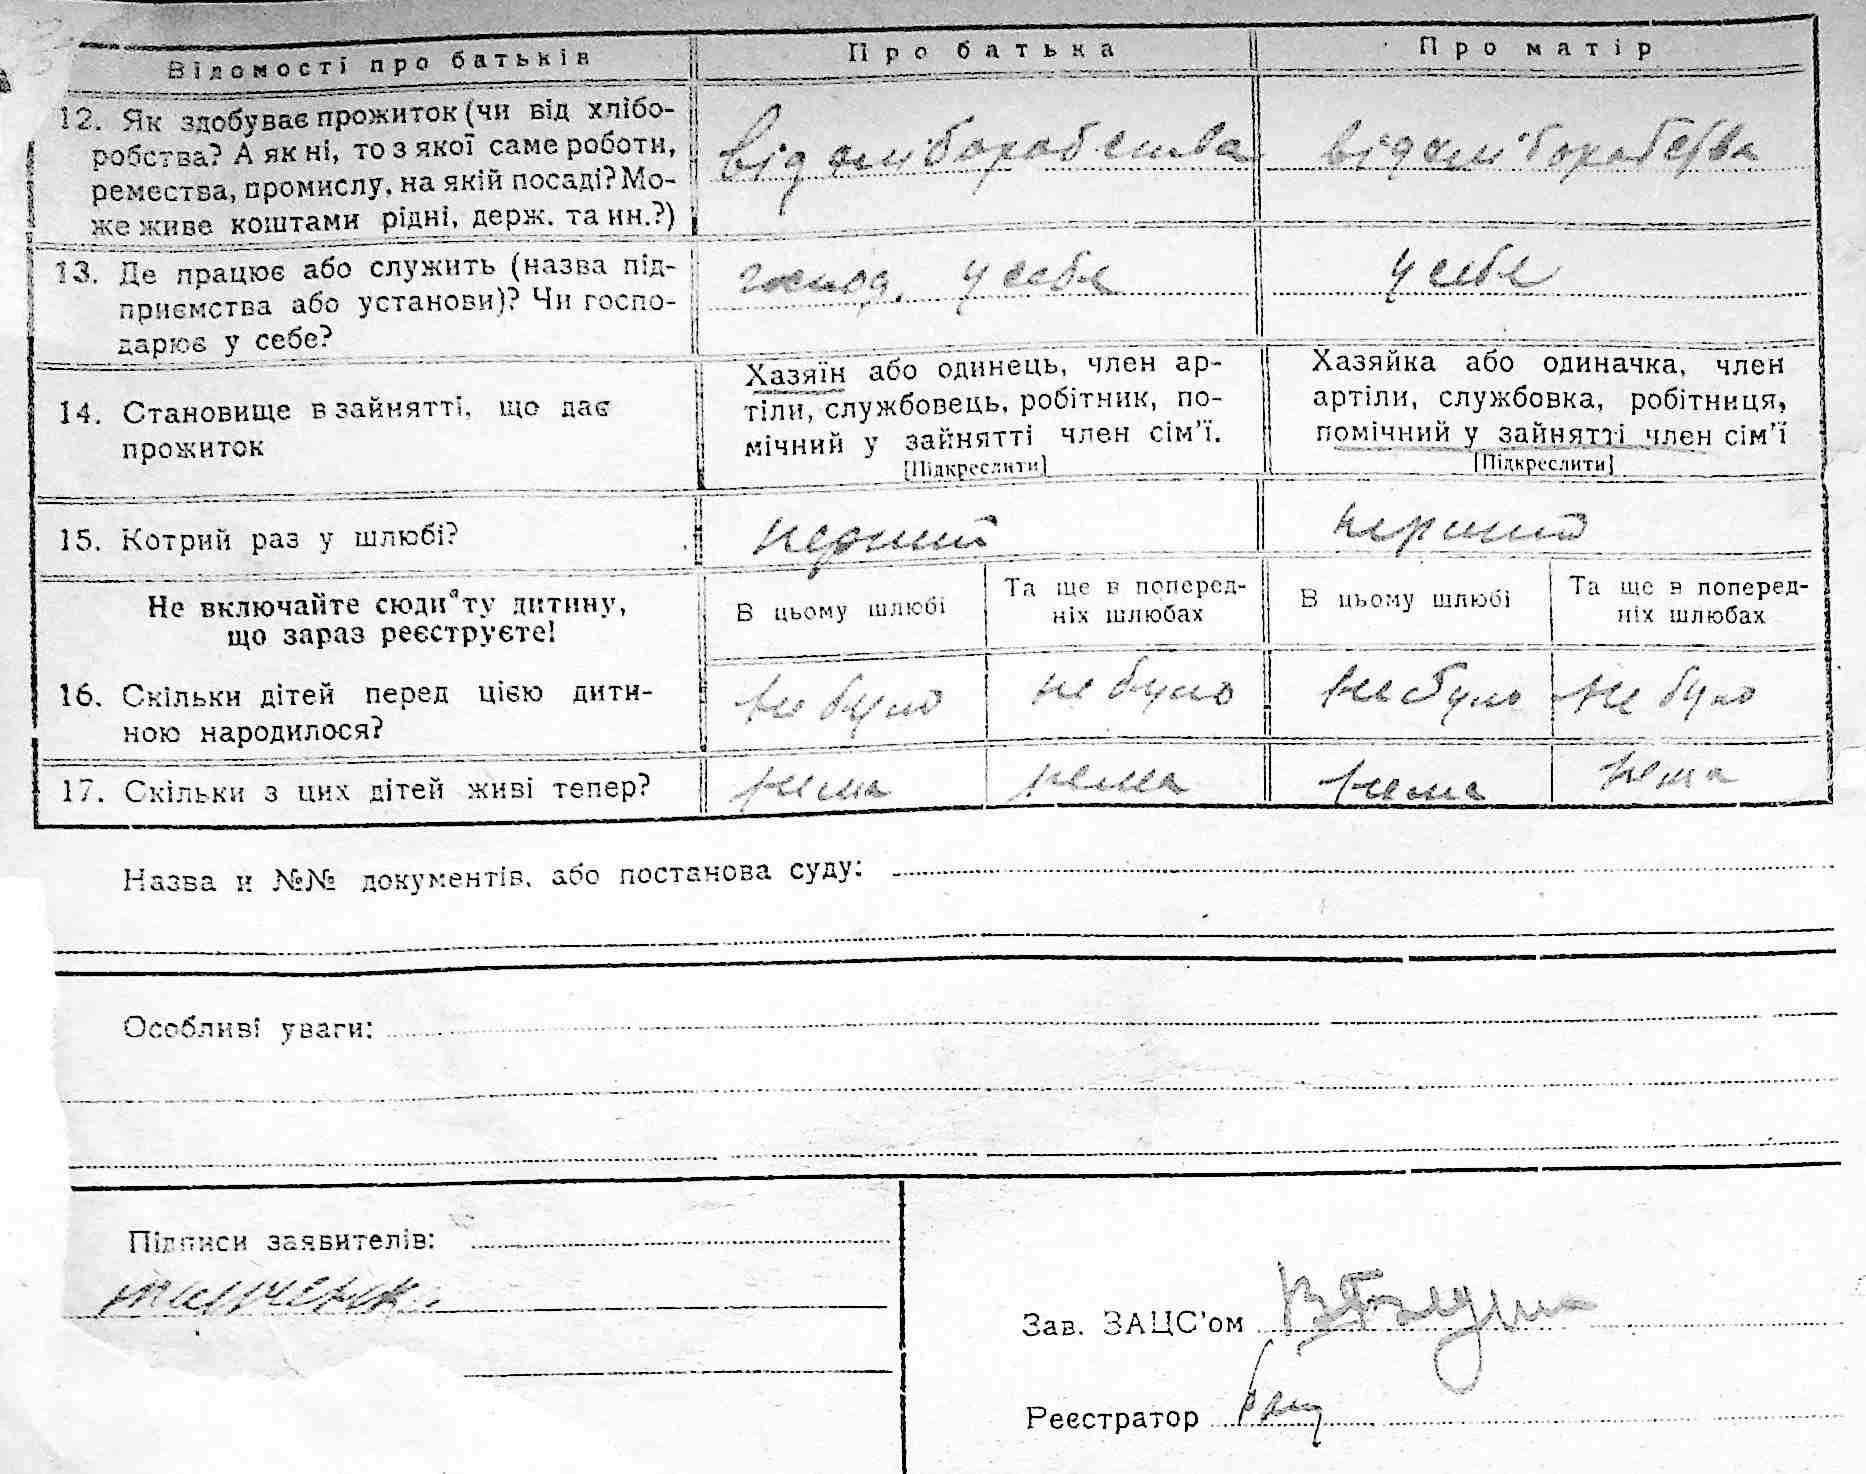 Відомості про батьків
Про батька
Про матір
12. Як здобуває прожиток (чи від хлібо-
робства? А як ні, то з якої саме роботи,
ремества, промислу, на якій посаді? Мо-
же живе коштами рідні, держ. та ин.?)
від хліборобства
від хліборобства
13. Де працює або служить (назва під-
приємства або установи)? Чи госпо-
дарює у себе?
господ. у себе
у себе
14. Становище в зайнятті, що дає
прожиток
Хазяїн або одинець, член ар-
тіли, службовець, робітник, по-
мічний у зайнятті член сім'ї.
[Підкреслити]
Хазяйка або одиначка, член
артіли, службовка, робітниця,
помічний у зайнятті член сім'ї
[Підкреслити]
15. Котрий раз у шлюбі?
перший
перший
Не включайте сюди ту дитину,
що зараз реєструєте!
В цьому шлюбі
Та ще в поперед-
ніх шлюбах
В цьому шлюбі
Та ще в поперед-
ніх шлюбах
16. Скільки дітей перед цією дити-
ною народилося?
не було
не було
не було
не було
17. Скільки з цих дітей живі тепер?
нема
нема
нема
нема
Назва и №№ документів, або постанова суду:
Особливі уваги:
Підписи заявителів:
Зав. ЗАЦС'ом
Реєстратор